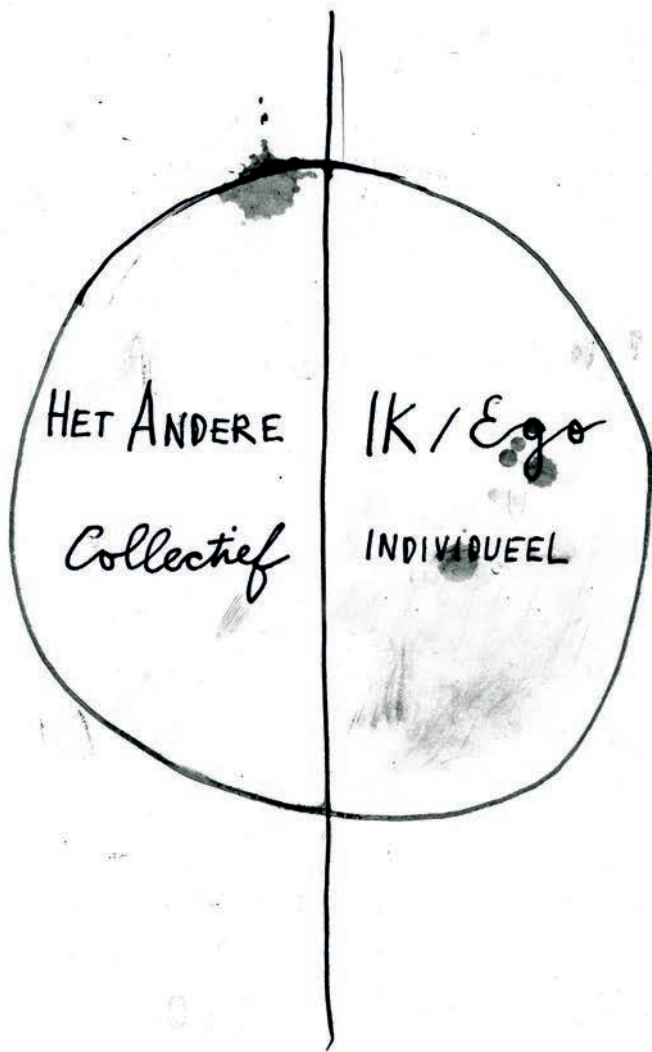 HET ANDERE
Collectief
IK / Ego
INDIVIDUEEL